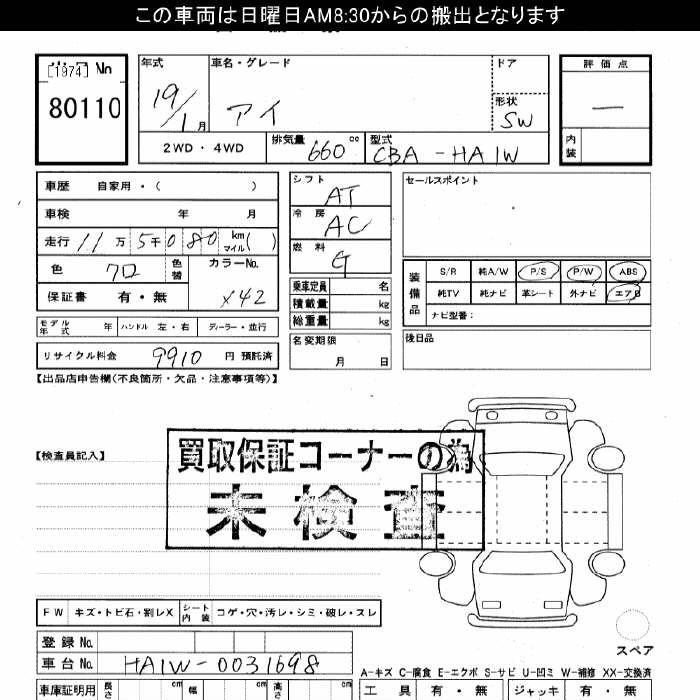 この車両は日曜日AM8:30からの搬出となります
[1974] No
80110
年式 19/1月
車名・グレード アイ
ドア
形状 SW
2WD・4WD
排気量 660 cc
型式 CBA-HA1W
評価点 一
内装
車歴 自家用・( )
車検 年 月
走行 11万5千080 km マイル( )
色 クロ 色替
カラーNo. X42
保証書 有・無
モデル年式 年 ハンドル 左・右 ディーラー・並行
リサイクル料金 9910 円 預託済
シフト AT
冷房 AC
燃料 G
乗車定員 名
積載量 kg
総重量 kg
名変期限 月 日
セールスポイント
装備品
S/R 純A/W P/S P/W ABS
純TV 純ナビ 革シート 外ナビ エアB
ナビ型番:
後日品
【出品店申告欄(不良箇所・欠品・注意事項等)】
【検査員記入】
買取保証コーナーの為
未検査
FW キズ・トビ石・割レX シート内装 コゲ・穴・汚レ・シミ・破レ・スレ
登録No.
車台No. HA1W-0031698
車庫証明用 長さ cm 幅 cm 高さ cm
スペア
A-キズ C-腐食 E-エクボ S-サビ U-凹ミ W-補修 XX-交換済
工具 有・無 ジャッキ 有・無